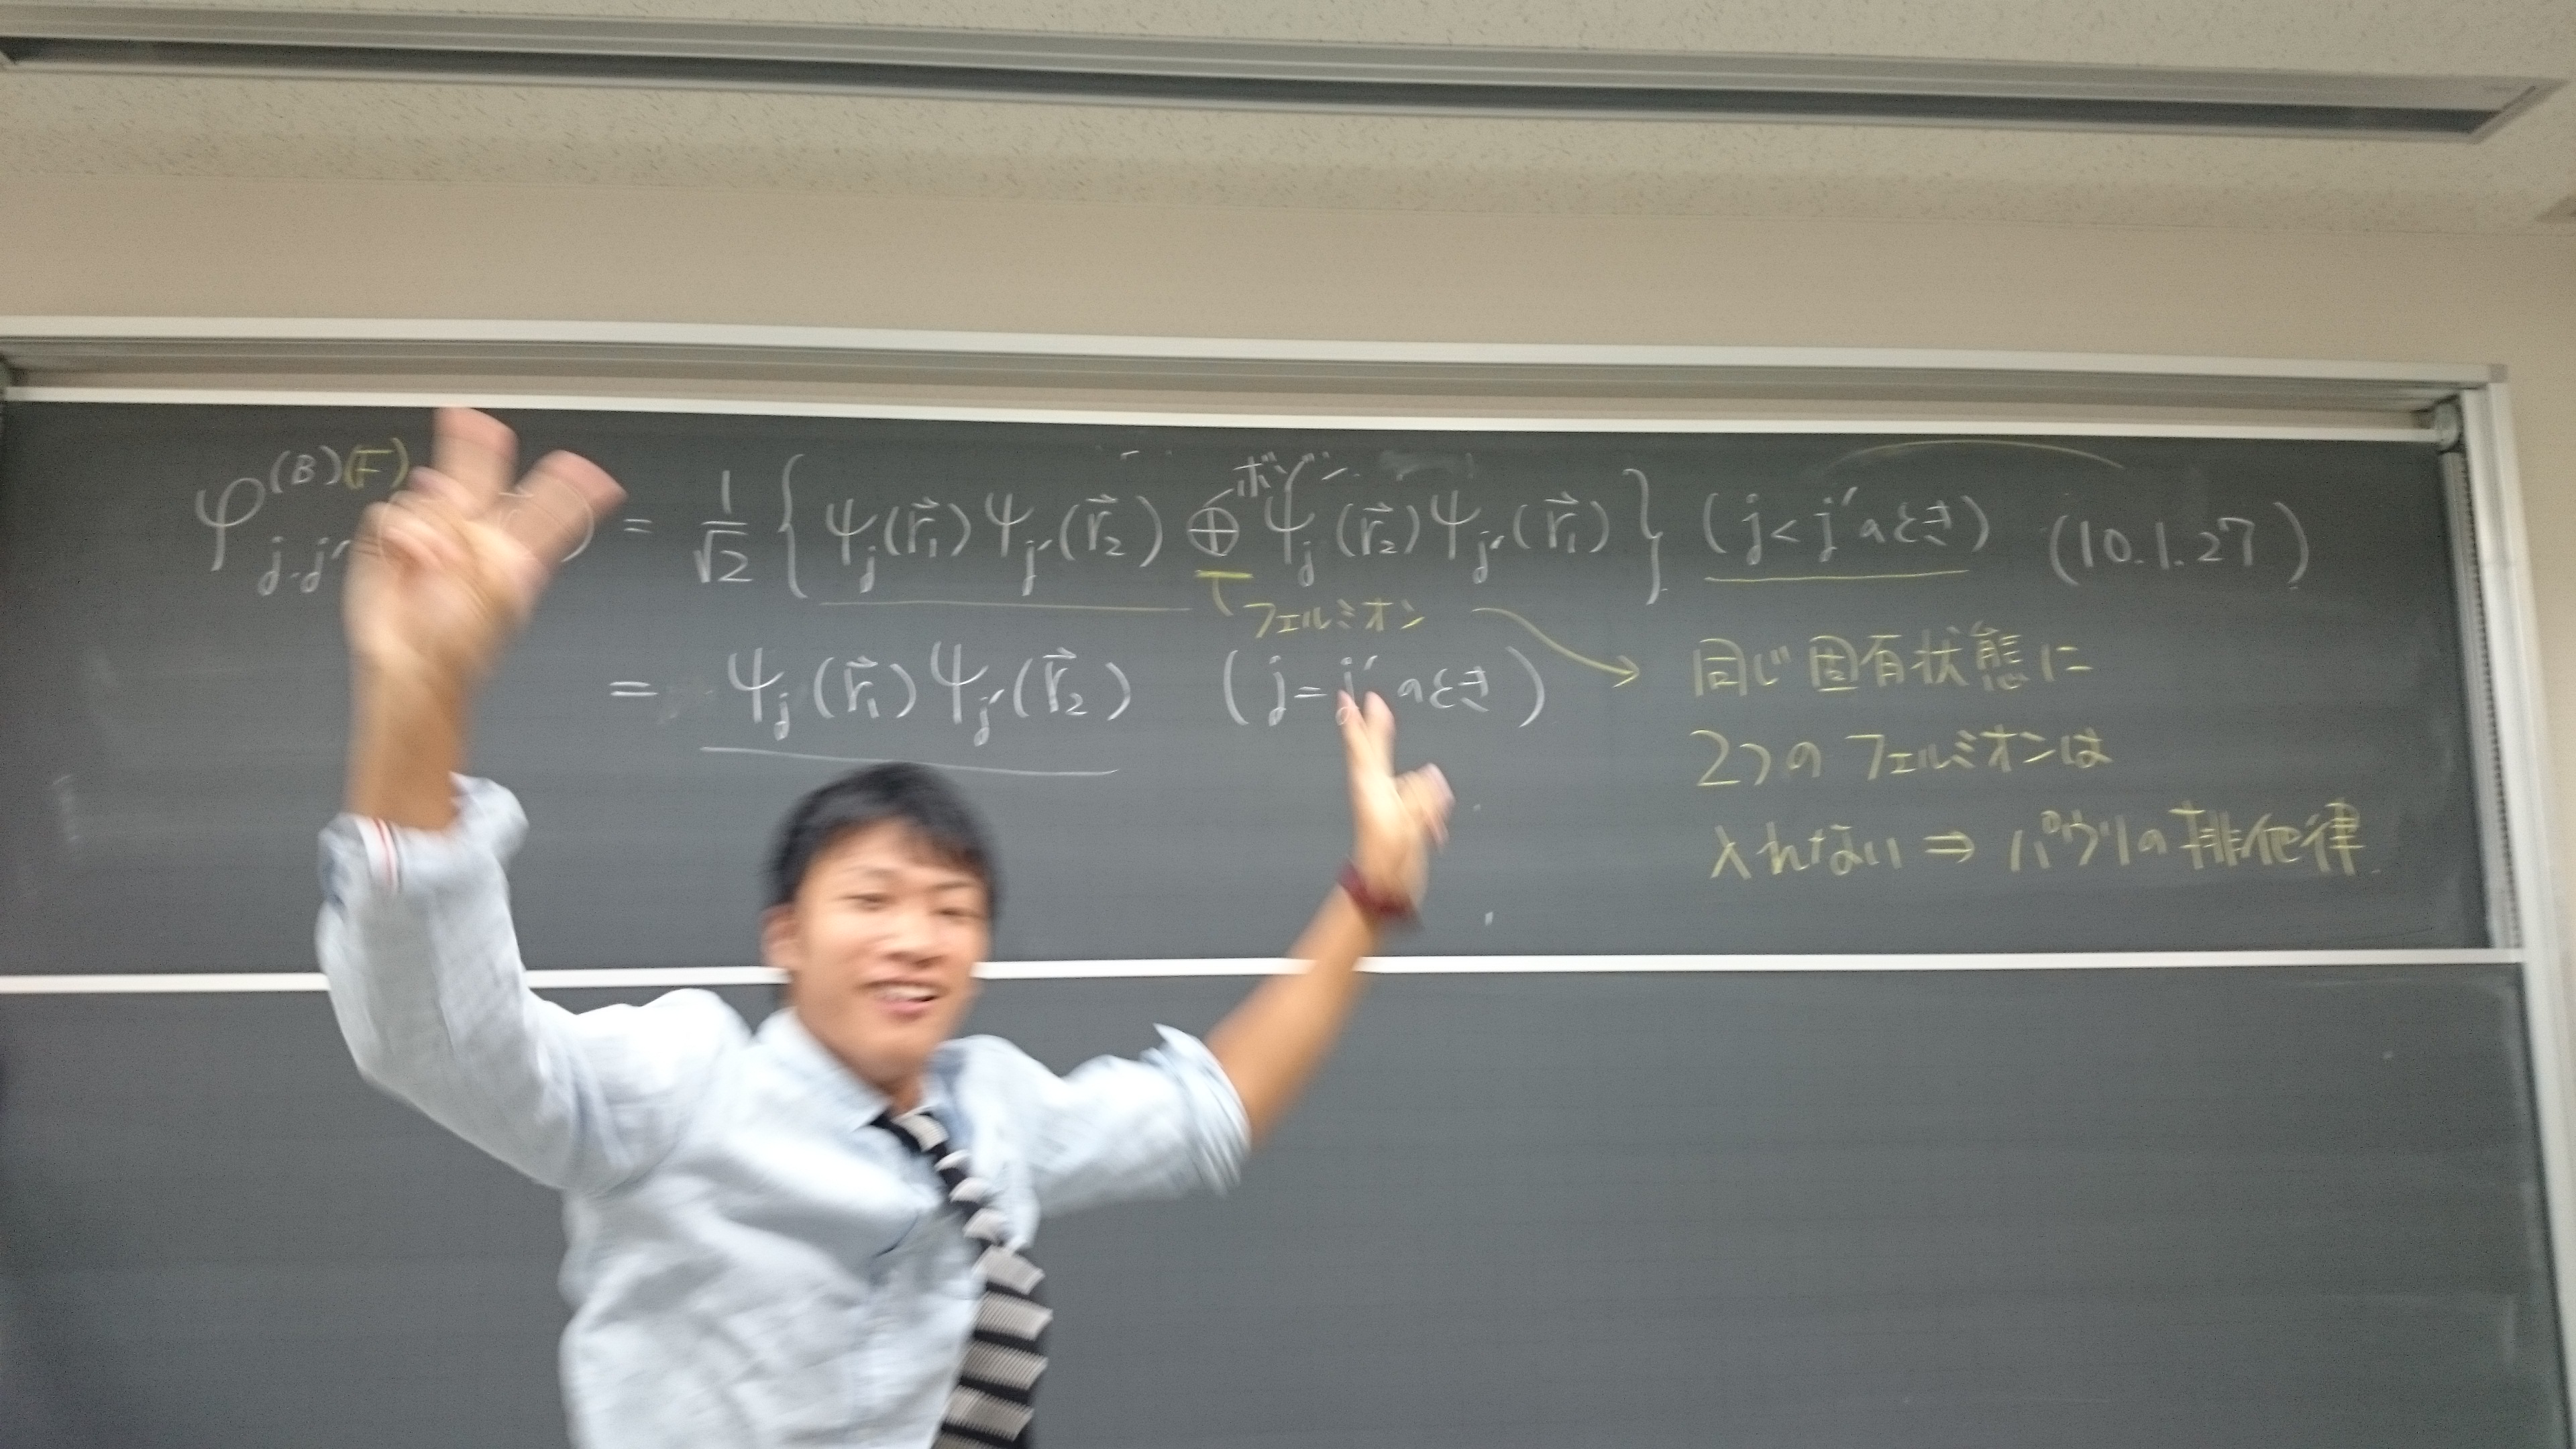 φ_{j.j'}^{(B)(F)} ( ) = 1/√2 { ψ_j(r⃗₁)ψ_{j'}(r⃗₂) ⊕ ψ_j(r⃗₂)ψ_{j'}(r⃗₁) } (j<j'のとき) (10.1.27)
ボソン
フェルミオン
= ψ_j(r⃗₁)ψ_{j'}(r⃗₂) (j=j'のとき)
同じ固有状態に
2つの フェルミオンは
入れない ⇒ パウリの排他律